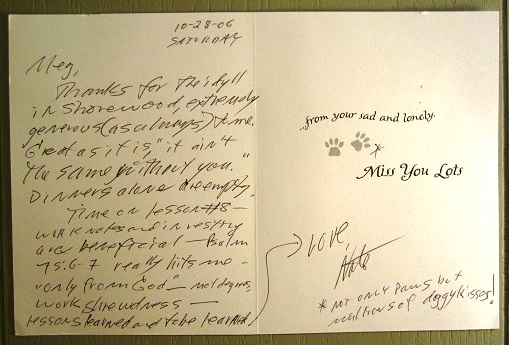 10-28-06
SATURDAY
Meg,
Thanks for the idyll
in Shorewood, extremely
generous (as always) time.
Great as it is, "it ain't
the same without you."
Dinners alone are empty.
Time on lesson #8 -
work notes and investing
are beneficial -
75:6-7 really hits me -
"only from God" - not degrees,
work, shrewdness -
lessons learned and to be learned
...from your sad and lonely.
*
Miss You Lots
Love,
* not only paws but
millions of doggy kisses!